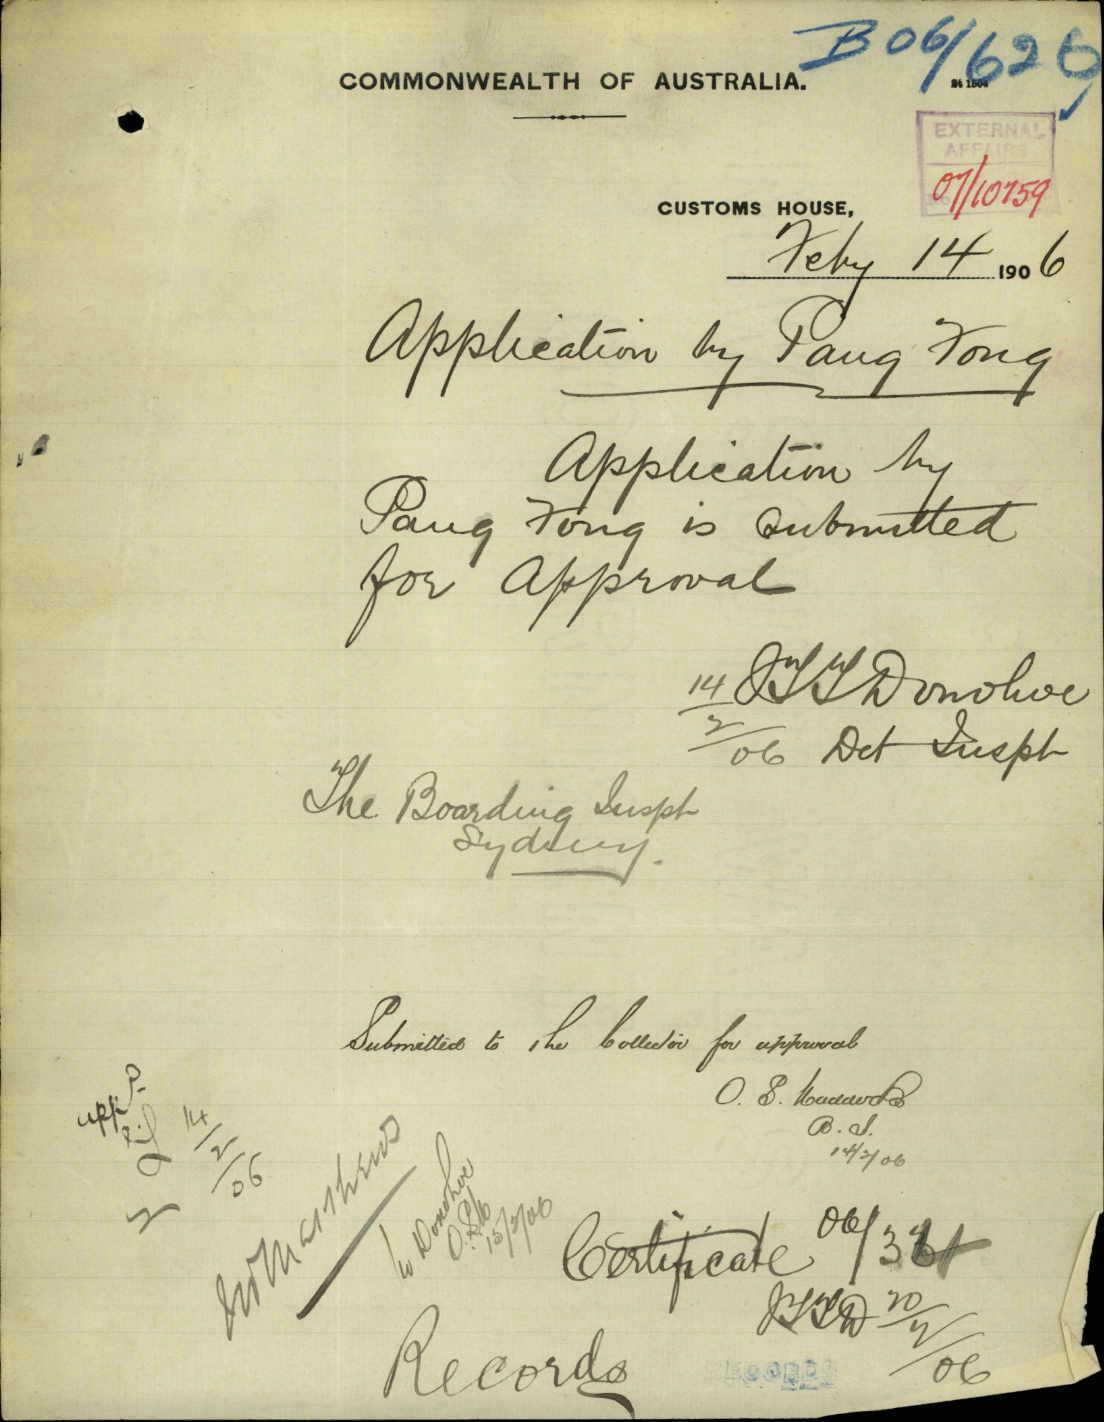 B06/626
COMMONWEALTH OF AUSTRALIA.
EXTERNAL
AFFAIRS
07/10759
CUSTOMS HOUSE,
Feby 14 1906
Application by Pang Fong
Application by
Pang Fong is submitted
for Approval
14/2/06 Donohoe
Det Inspt
The Boarding Inspt
Sydney.
Submitted to the Collector for approval
B. I.
14/2/06
14/2/06
Donohoe
15/2/06
Certificate 06/
06
Records
RECORDS